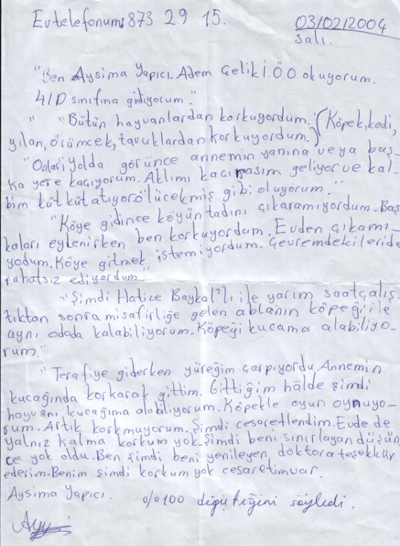 Ev telefonum 873 29 15.
03/02/2004
Salı.
"Ben Aysima Yapıcı. Adem Çelik İ.Ö.O okuyorum.
4/D sınıfına gidiyorum."
"Bütün hayvanlardan korkuyordum. (Köpek, kedi,
yılan, örümcek, tavuklardan korkuyordum.
"Onları yolda görünce annemin yanına veya baş-
ka yere kaçıyorum. Aklımı kaçırasım geliyor ve kal-
bim küt küt atıyor ölücekmiş gibi oluyorum."
"Köye gidince köyün tadını çıkaramıyordum. Baş
kaları eylenirken ben korkuyordum. Evden çıkamı-
yodum. Köye gitmek istemiyordum. Çevremdekileride
rahatsız ediyordum"
"Şimdi Hatice Baykal'lı ile yarım saat çalış
tıktan sonra misafirliğe gelen ablanın köpeği ile
aynı odada kalabiliyorum. Köpeği kucama alabiliyo-
rum."
"Terafiye giderken yüreğim çarpıyordu. Annemin
kucağında korkarak gittim. Gittiğim hâlde şimdi
hayvanı kucağıma alabiliyorum. Köpekle oyun oynuyo-
rum. Artık korkmuyorum. Şimdi cesaretlendim. Evde de
yalnız kalma korkum yok. Şimdi beni sınırlayan düşün
ce yok oldu. Ben şimdi beni yenileyen doktora teşekkür
ederim. Benim şimdi korkum yok cesaretim var.
Aysima Yapıcı.
%100 değiştiğini söyledi.